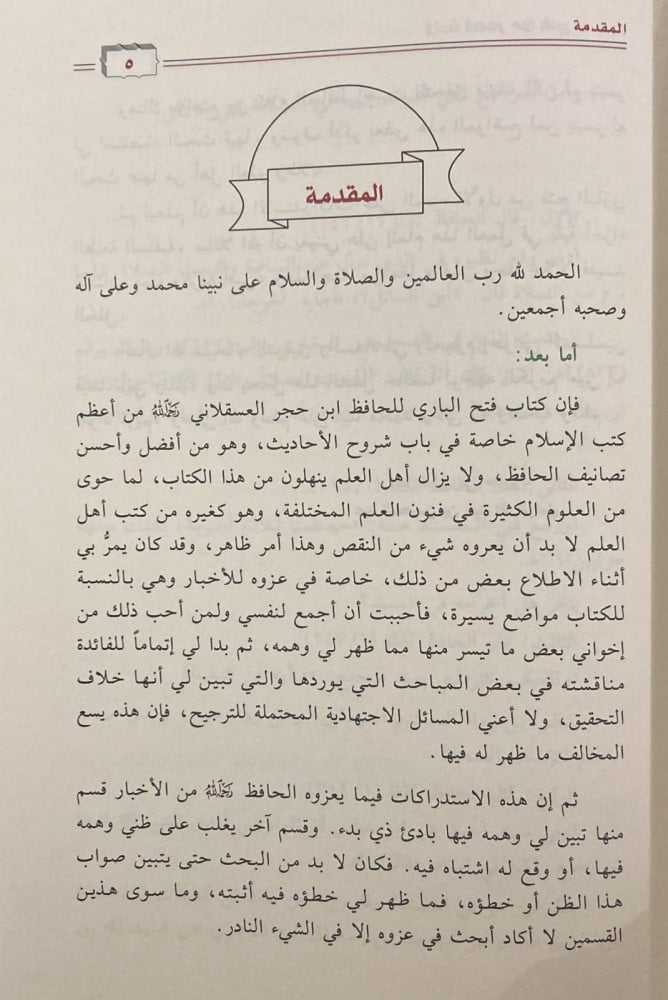 المقدمة
٥
المقدمة
الحمد لله رب العالمين والصلاة والسلام على نبينا محمد وعلى آله
وصحبه أجمعين.
أما بعد:
فإن كتاب فتح الباري للحافظ ابن حجر العسقلاني رحمه الله من أعظم
كتب الإسلام خاصة في باب شروح الأحاديث، وهو من أفضل وأحسن
تصانيف الحافظ، ولا يزال أهل العلم ينهلون من هذا الكتاب، لما حوى
من العلوم الكثيرة في فنون العلم المختلفة، وهو كغيره من كتب أهل
العلم لا بد أن يعروه شيء من النقص وهذا أمر ظاهر، وقد كان يمرُّ بي
أثناء الاطلاع بعض من ذلك، خاصة في عزوه للأخبار وهي بالنسبة
للكتاب مواضع يسيرة، فأحببت أن أجمع لنفسي ولمن أحب ذلك من
إخواني بعض ما تيسر منها مما ظهر لي وهمه، ثم بدا لي إتماماً للفائدة
مناقشته في بعض المباحث التي يوردها والتي تبين لي أنها خلاف
التحقيق، ولا أعني المسائل الاجتهادية المحتملة للترجيح، فإن هذه يسع
المخالف ما ظهر له فيها.
ثم إن هذه الاستدراكات فيما يعزوه الحافظ رحمه الله من الأخبار قسم
منها تبين لي وهمه فيها بادئ ذي بدء. وقسم آخر يغلب على ظني وهمه
فيها، أو وقع له اشتباه فيه. فكان لا بد من البحث حتى يتبين صواب
هذا الظن أو خطؤه، فما ظهر لي خطؤه فيه أثبته، وما سوى هذين
القسمين لا أكاد أبحث في عزوه إلا في الشيء النادر.